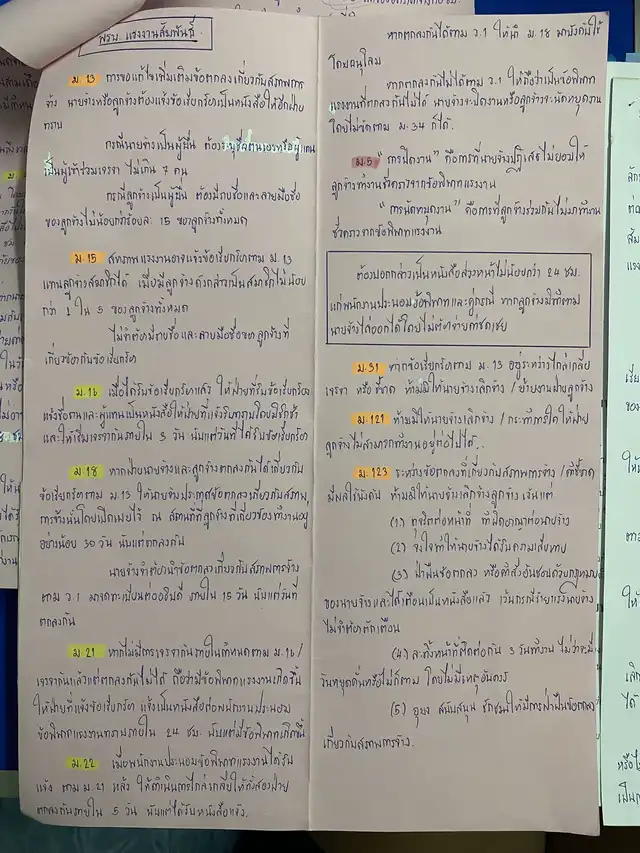 พรบ. แรงงานสัมพันธ์
ม.13 การขอแก้ไขเพิ่มเติมข้อตกลงเกี่ยวกับสภาพการ
จ้าง นายจ้างหรือลูกจ้างต้องแจ้งข้อเรียกร้องเป็นหนังสือให้อีกฝ่าย
ทราบ
กรณีนายจ้างเป็นผู้ยื่น ต้องระบุชื่อตนเองหรือผู้แทน
เป็นผู้เข้าร่วมเจรจา ไม่เกิน 7 คน
กรณีลูกจ้างเป็นผู้ยื่น ต้องมีรายชื่อและลายมือชื่อ
ของลูกจ้างไม่น้อยกว่าร้อยละ 15 ของลูกจ้างทั้งหมด
ม.15 สหภาพแรงงานอาจแจ้งข้อเรียกร้องตาม ม.13
แทนลูกจ้างสมาชิกได้ เมื่อมีลูกจ้างดังกล่าวเป็นสมาชิกไม่น้อย
กว่า 1 ใน 5 ของลูกจ้างทั้งหมด
ไม่จำต้องมีรายชื่อและลายมือชื่อของลูกจ้างที่
เกี่ยวข้องกับข้อเรียกร้อง
ม.16 เมื่อได้รับข้อเรียกร้องแล้ว ให้ฝ่ายที่รับข้อเรียกร้อง
แจ้งชื่อตนและผู้แทนเป็นหนังสือให้ฝ่ายที่แจ้งทราบโดยมิชักช้า
และให้เริ่มเจรจากันภายใน 3 วัน นับแต่วันที่ได้รับข้อเรียกร้อง
ม.18 หากฝ่ายนายจ้างและลูกจ้างตกลงกันได้เกี่ยวกับ
ข้อเรียกร้องตาม ม.13 ให้นายจ้างประกาศข้อตกลงเกี่ยวกับสภาพ
การจ้างนั้นโดยเปิดเผยไว้ ณ สถานที่ที่ลูกจ้างที่เกี่ยวข้องทำงานอยู่
อย่างน้อย 30 วัน นับแต่ตกลงกัน
นายจ้างจำต้องนำข้อตกลงเกี่ยวกับสภาพการจ้าง
ตาม ว.1 มาจดทะเบียนต่ออธิบดี ภายใน 15 วัน นับแต่วันที่
ตกลงกัน
ม.21 หากไม่มีการเจรจากันภายในกำหนดตาม ม.16 /
เจรจากันแล้วแต่ตกลงกันไม่ได้ ถือว่ามีข้อพิพาทแรงงานเกิดขึ้น
ให้ฝ่ายที่แจ้งข้อเรียกร้อง แจ้งเป็นหนังสือต่อพนักงานประนอม
ข้อพิพาทแรงงานทราบภายใน 24 ชม. นับแต่มีข้อพิพาทเกิดขึ้น
ม.22 เมื่อพนักงานประนอมข้อพิพาทแรงงานได้รับ
แจ้ง ตาม ม.21 แล้ว ให้ดำเนินการไกล่เกลี่ยให้ทั้งสองฝ่าย
ตกลงกันภายใน 5 วัน นับแต่ได้รับหนังสือแจ้ง.
หากตกลงกันได้ตาม ว.1 ให้นำ ม.18 มาบังคับใช้
โดยอนุโลม
หากตกลงกันไม่ได้ตาม ว.1 ให้ถือว่าเป็นข้อพิพาท
แรงงานที่ตกลงกันไม่ได้ นายจ้างจะปิดงานหรือลูกจ้างจะนัดหยุดงาน
โดยไม่ขัดตาม ม.34 ก็ได้.
ม.5 "การปิดงาน" คือการที่นายจ้างปฏิเสธไม่ยอมให้
ลูกจ้างทำงานชั่วคราวจากข้อพิพาทแรงงาน
"การนัดหยุดงาน" คือการที่ลูกจ้างร่วมกันไม่มาทำงาน
ชั่วคราวจากข้อพิพาทแรงงาน
ต้องบอกกล่าวเป็นหนังสือล่วงหน้าไม่น้อยกว่า 24 ชม.
แก่พนักงานประนอมข้อพิพาทและคู่กรณี หากลูกจ้างมิทำตาม
นายจ้างไล่ออกได้โดยไม่ต้องจ่ายค่าชดเชย
ม.31 หากข้อเรียกร้องตาม ม.13 อยู่ระหว่างไกล่เกลี่ย
เจรจา หรือ ชี้ขาด ห้ามมิให้นายจ้างเลิกจ้าง / ย้ายงานฝ่ายลูกจ้าง
ม.121 ห้ามมิให้นายจ้างเลิกจ้าง / กระทำการใด ให้ฝ่าย
ลูกจ้างไม่สามารถทำงานอยู่ต่อไปได้..
ม.123 ระหว่างข้อตกลงที่เกี่ยวกับสภาพการจ้าง / คำชี้ขาด
มีผลใช้บังคับ ห้ามมิให้นายจ้างเลิกจ้างลูกจ้าง เว้นแต่
(1) ทุจริตต่อหน้าที่ ทำผิดอาญาต่อนายจ้าง
(2) จงใจทำให้นายจ้างได้รับความเสียหาย
(3) ฝ่าฝืนข้อตกลง หรือคำสั่งอันชอบด้วยกฎหมาย
ของนายจ้างและได้เตือนเป็นหนังสือแล้ว เว้นกรณีร้ายแรงนายจ้าง
ไม่จำต้องตักเตือน
(4) ละทิ้งหน้าที่ติดต่อกัน 3 วันทำงาน ไม่ว่าจะมี
วันหยุดคั่นหรือไม่ก็ตาม โดยไม่มีเหตุอันควร
(5) ยุยง สนับสนุน ชักชวนให้มีการฝ่าฝืนข้อตกลง
เกี่ยวกับสภาพการจ้าง.